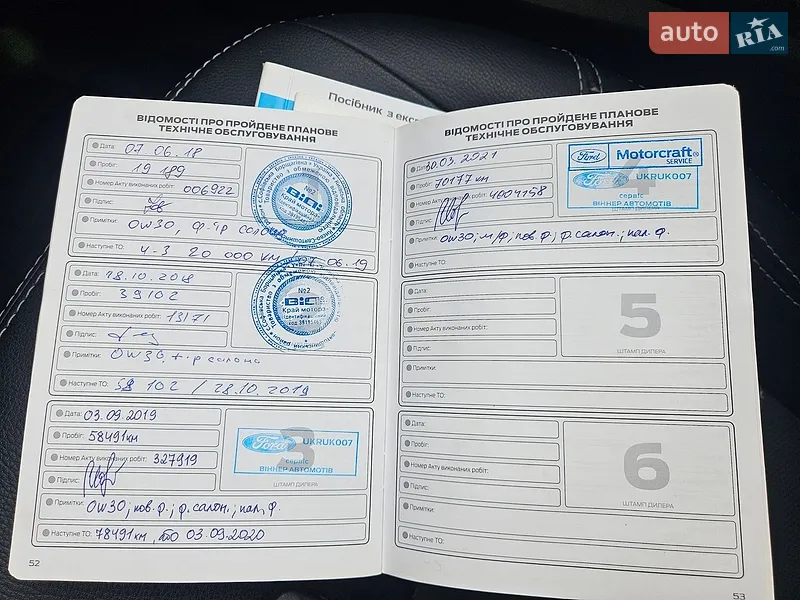 auto RIA.com
Посібник з експ
ВІДОМОСТІ ПРО ПРОЙДЕНЕ ПЛАНОВЕ
ТЕХНІЧНЕ ОБСЛУГОВУВАННЯ
Дата: 07 06.18
Пробіг: 19 189
Номер Акту виконаних робіт: 006922
Підпис:
Примітки: 0W30, ф-тр салона
Наступне ТО: 4-3 20 000 км 07.06.19
№2
ВіДі
Край моторз
Дата: 28.10.2018
Пробіг: 39102
Номер Акту виконаних робіт: 13171
Підпис:
Примітки: 0W30, ф-р салона
Наступне ТО: 58 102 / 28.10.2019
№2
ВіДі
Край моторз
Ідентифікаційний
код 38195463
Дата: 03.09.2019
Пробіг: 58491км
Номер Акту виконаних робіт: 327919
Підпис:
Примітки: 0W30; пов. ф.; ф. салон.; пал. ф.
Наступне ТО: 78491км, або 03.09.2020
3
Ford UKRUK007
сервіс
ВІННЕР АВТОМОТІВ
ШТАМП ДИЛЕРА
52
ВІДОМОСТІ ПРО ПРОЙДЕНЕ ПЛАНОВЕ
ТЕХНІЧНЕ ОБСЛУГОВУВАННЯ
Дата: 30.03.2021
Пробіг: 70177км
Номер Акту робіт: 4004158
Підпис:
Примітки: 0W30; м/ф; пов ф.; ф. салон.; пал. ф.
Наступне ТО:
Ford Motorcraft
SERVICE
4
Ford UKRUK007
сервіс
ВІННЕР АВТОМОТІВ
Дата:
Пробіг:
Номер Акту виконаних робіт:
Підпис:
Примітки:
Наступне ТО:
5
ШТАМП ДИЛЕРА
Дата:
Пробіг:
Номер Акту виконаних робіт:
Підпис:
Примітки:
Наступне ТО:
6
ШТАМП ДИЛЕРА
53